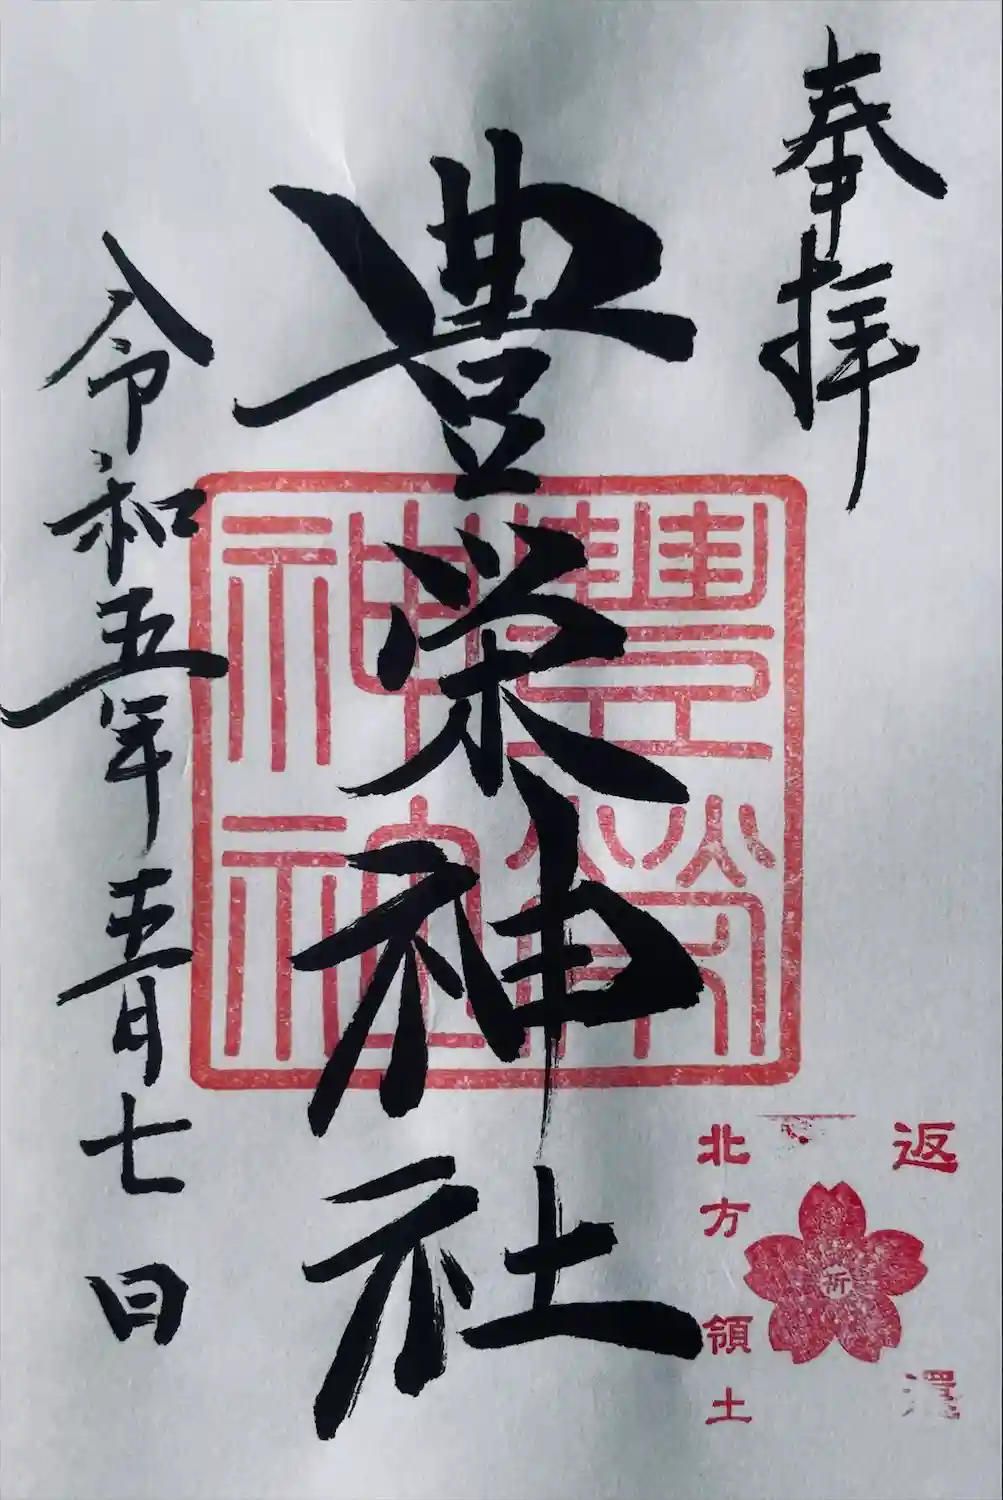 奉拝
豊栄神社
豊榮
神社
令和五年五月七日
返還
祈
北方領土